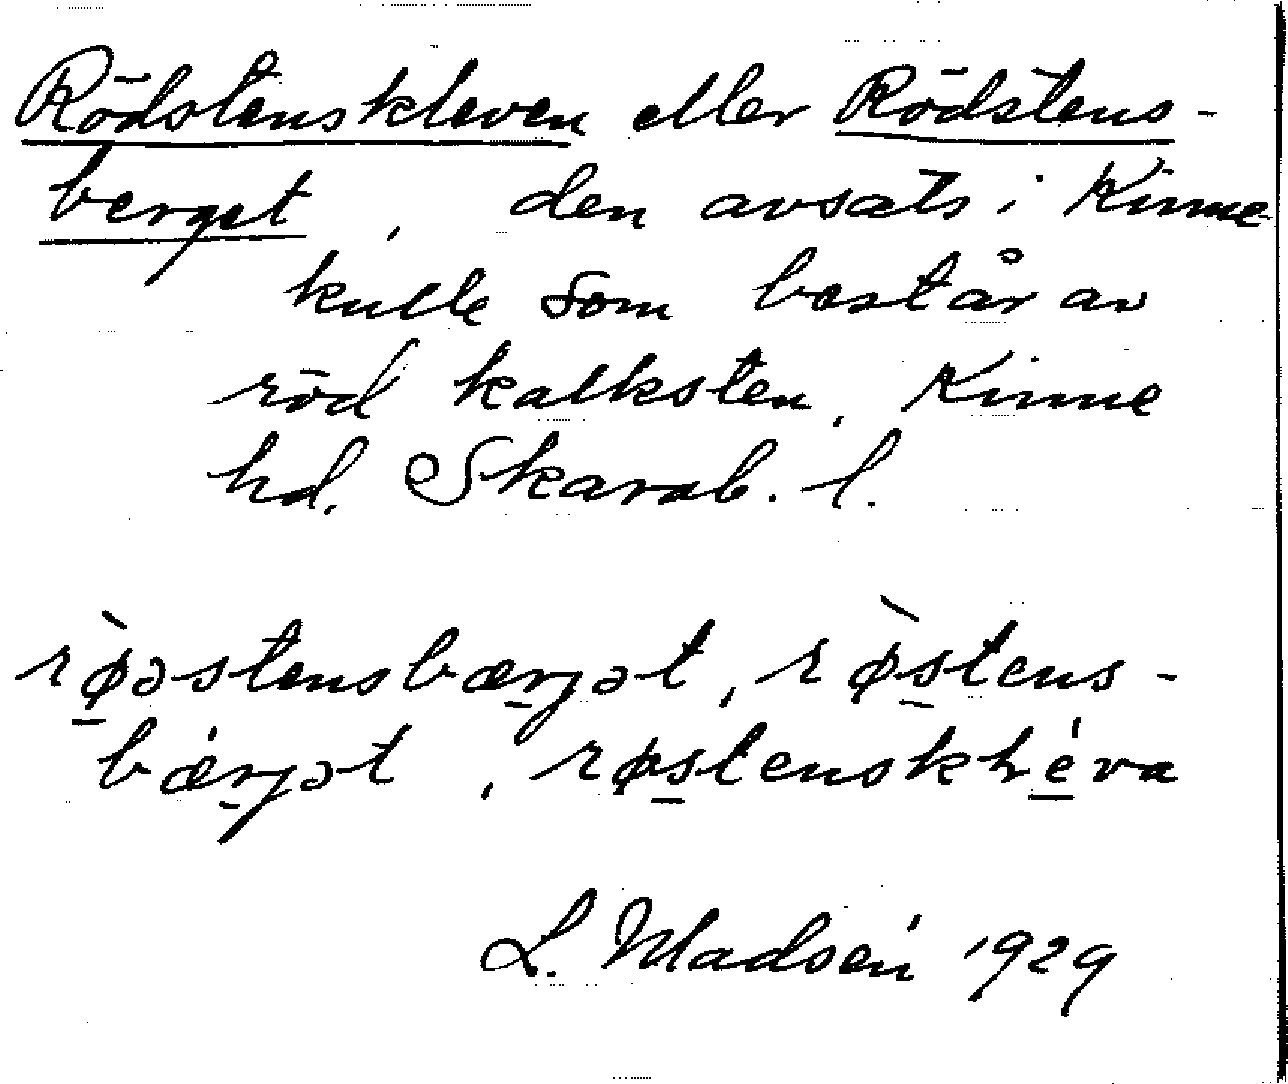 Rödstenskleven eller Rödstens-
berget, den avsats i Kinne
kulle som består av
röd kalksten, Kinne
hd. Skarab. l.
rø̀əstensbærjət, rø̀stens-
bǽrjət, røstenskłéva
L. Madsén 1929